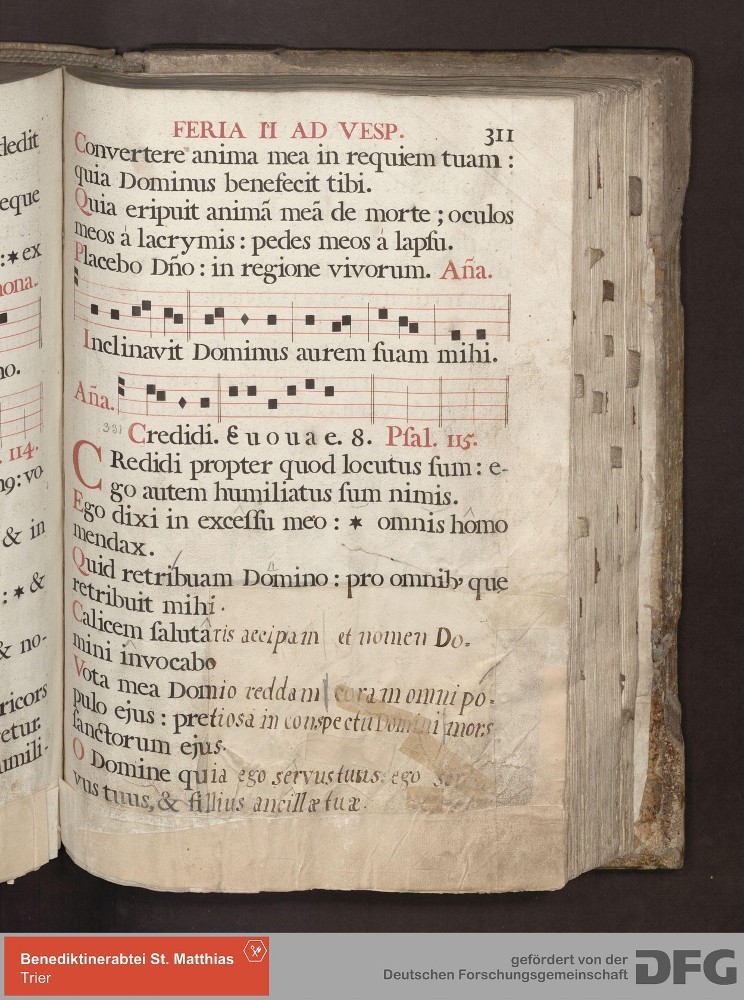 FERIA II AD VESP. 311
Convertere anima mea in requiem tuam :
quia Dominus benefecit tibi.
Quia eripuit animã meã de morte ; oculos
meos á lacrymis : pedes meos á lapſu.
Placebo Dño : in regione vivorum. Aña.
Inclinavit Dominus aurem ſuam mihi.
Aña.
331 Credidi. E u o u a e. 8. Pſal. 115.
CRedidi propter quod locutus ſum : e-
go autem humiliatus ſum nimis.
Ego dixi in exceſſu meo : ✶ omnis hômo
mendax.
Quid retríbuam Dómino : pro omnib, que
retribuit mihi .
Calicem ſalutâris accipam et nomen Do-
mini invocabo
Vota mea Domio reddam coram omni po-
pulo ejus : pretiosa in conspectu Domini mors
ſanctorum ejus.
O Domine quia ego servus tuus. ego
vus tuus, & fillius ancillæ tuæ.
dedit
eque
: ✶ ex
nona.
no.
. 114.
: vo
& in
: ✶ &
& no-
ricors
etur.
umili-
Benediktinerabtei St. Matthias
Trier
gefördert von der
Deutschen Forschungsgemeinschaft
DFG